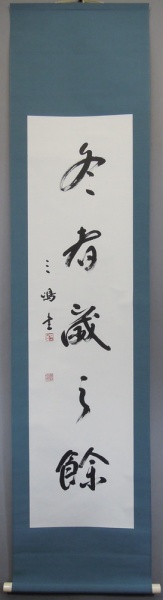 冬者歳之餘
三鴻書